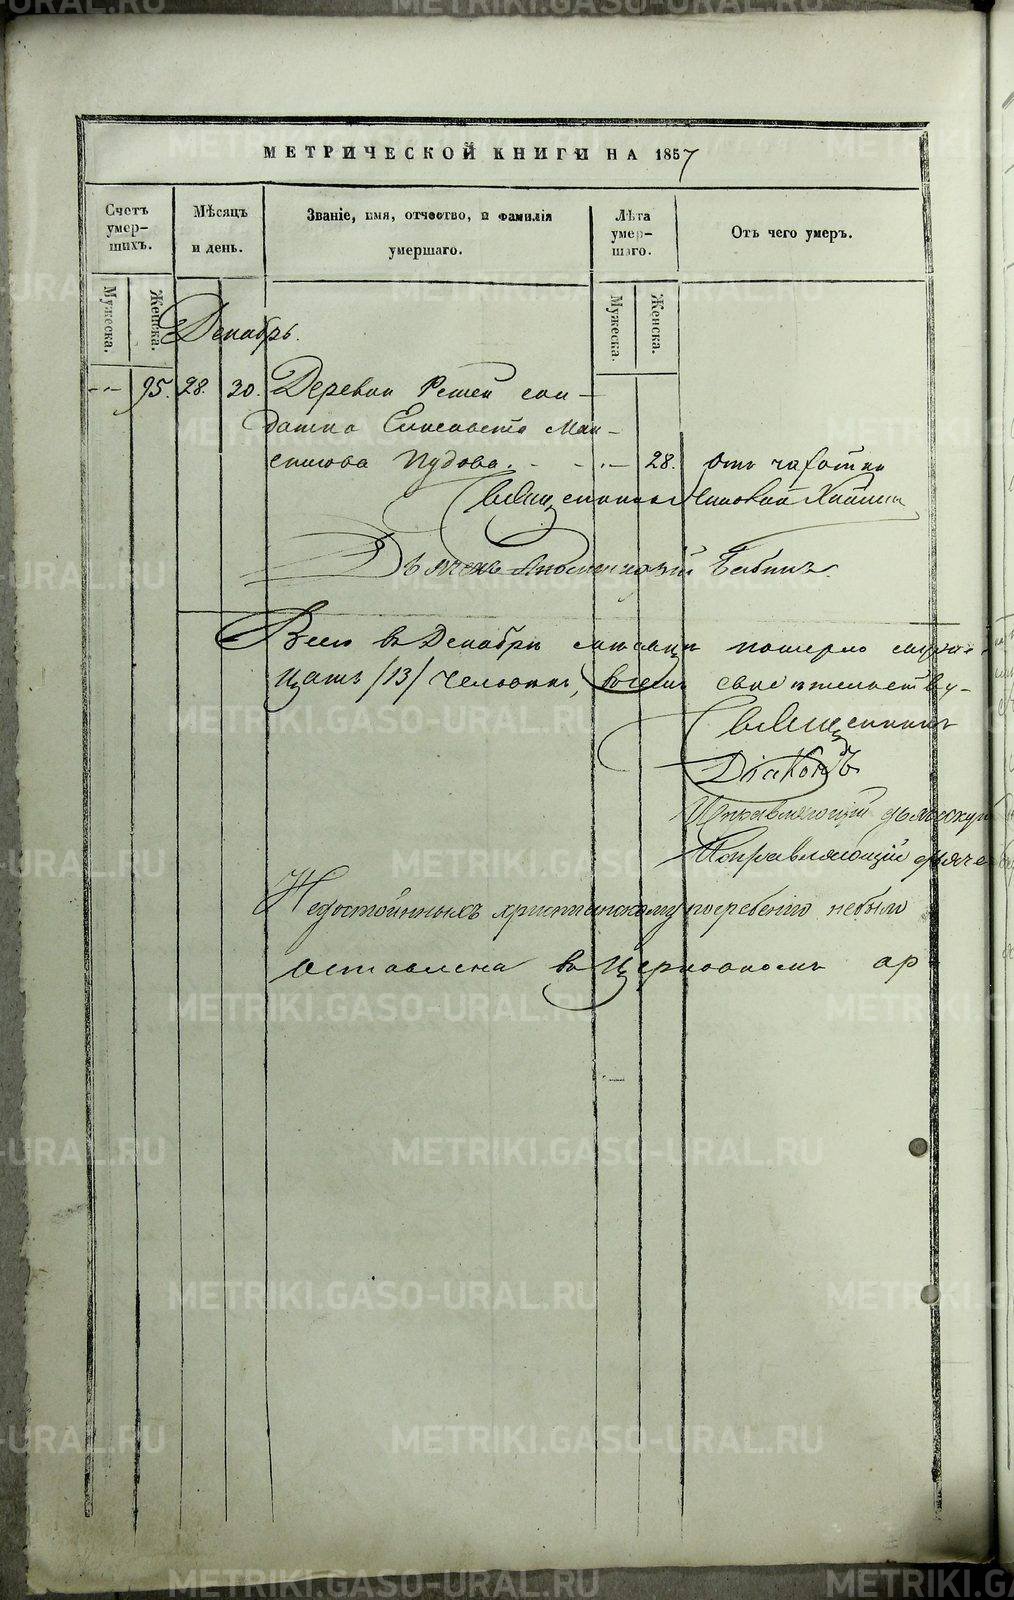 МЕТРИЧЕСКОЙ КНИГИ НА 1857
Счетъ умер-шихъ.
Мѣсяцъ и день.
Званіе, имя, отчество, и фамилія умершаго.
Лѣта умер-шаго.
Отъ чего умеръ.
Мужеска.
Женска.
Мужеска.
Женска.
Декабрь.
95. 28. 30. Деревни Решей сол-
датка Елисавета Мак-
симова Пудова. 28. отъ чахотки
Священникъ
Дьячекъ Бабинъ.
Всего въ Декабрѣ мѣсяцѣ померло
цать /13/ человекъ, въ чемъ свидѣтельству-
Священникъ
Діаконъ
Исправляющій
Исправляющій дьяче
Недостойныхъ христіянскому погребенію небыло
оставлена въ церковномъ ар
METRIKI.GASO-URAL.RU